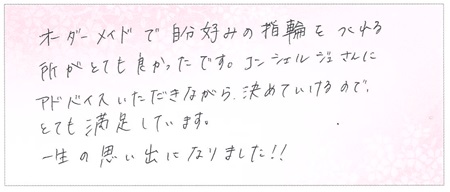 オーダーメイドで自分好みの指輪をつくれる
所がとても良かったです。コンシェルジュさんに
アドバイスいただきながら、決めていけるので、
とても満足しています。
一生の思い出になりました!!